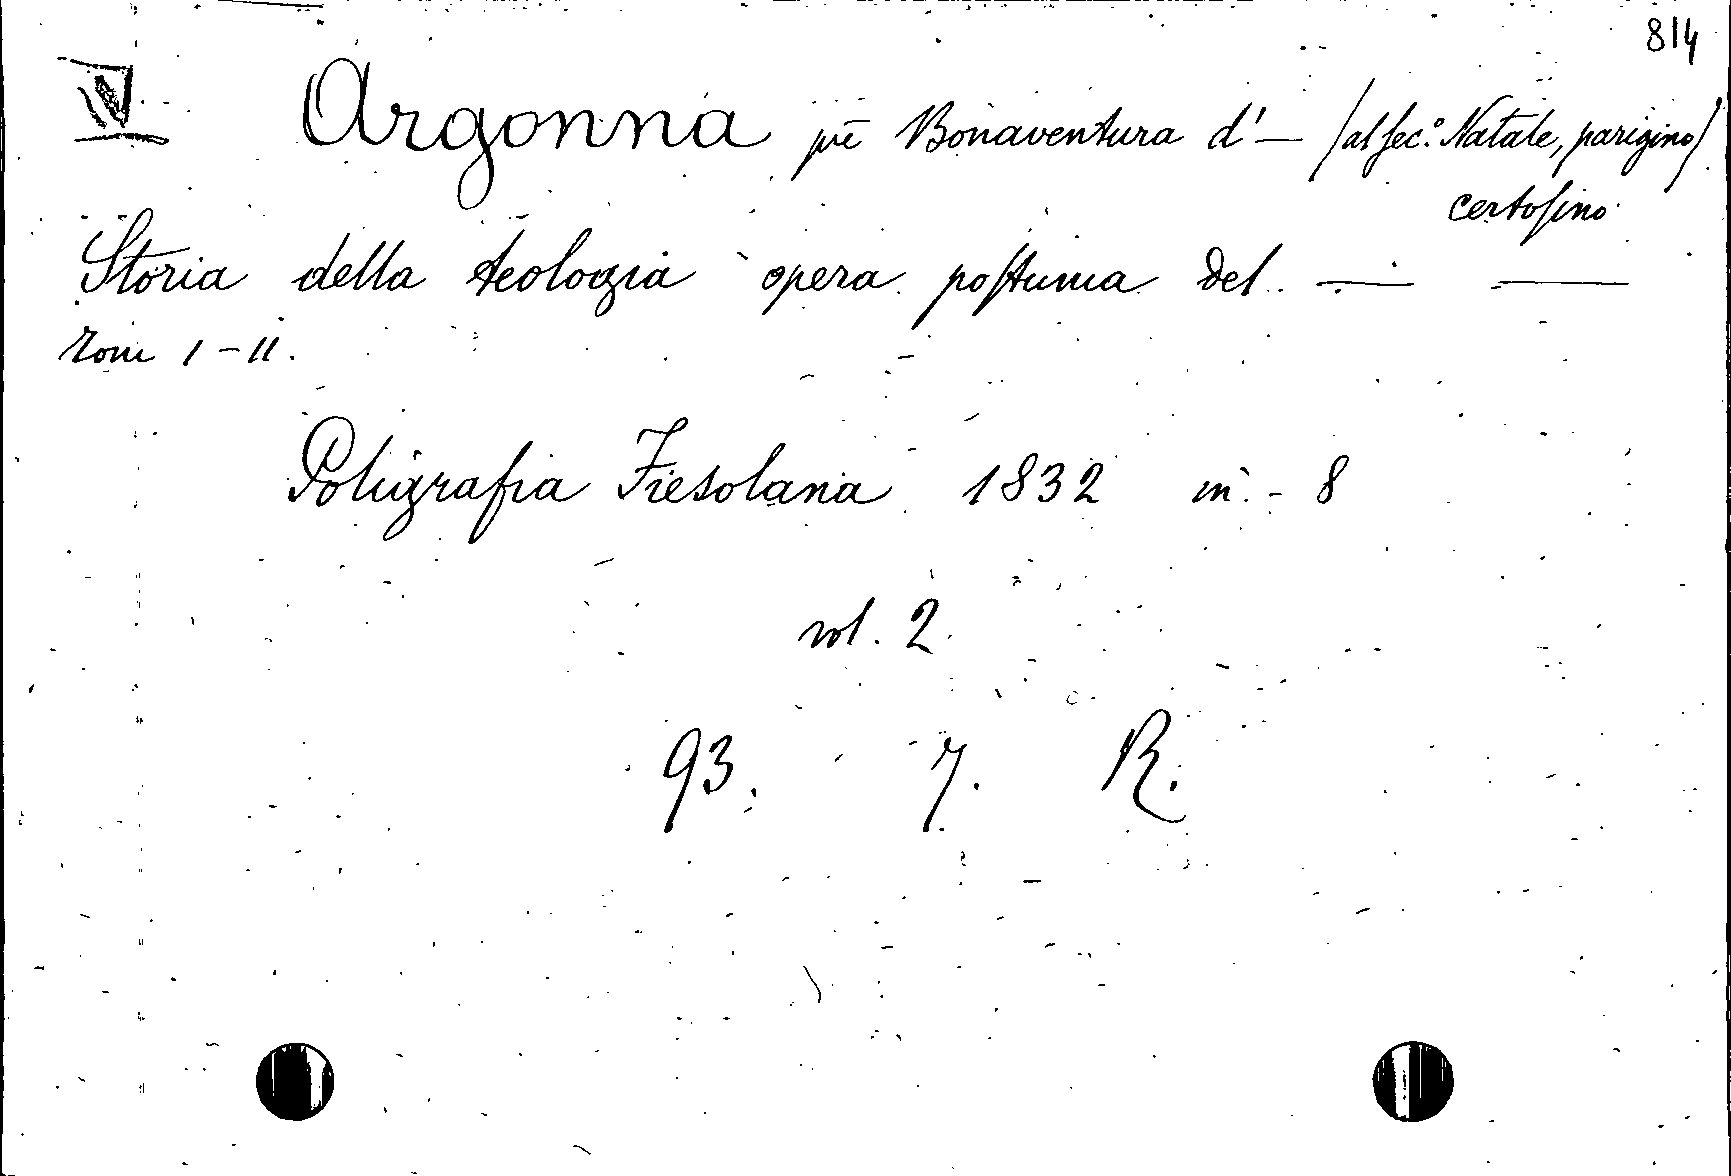 814
Argonna pre Bonaventura d' — (al sec.º Natale, parigino)
certosino
Storia della teologia opera postuma del — —
Tomi I-II.
Poligrafia Fiesolana 1832 in - 8
vol. 2
93. 7. R.